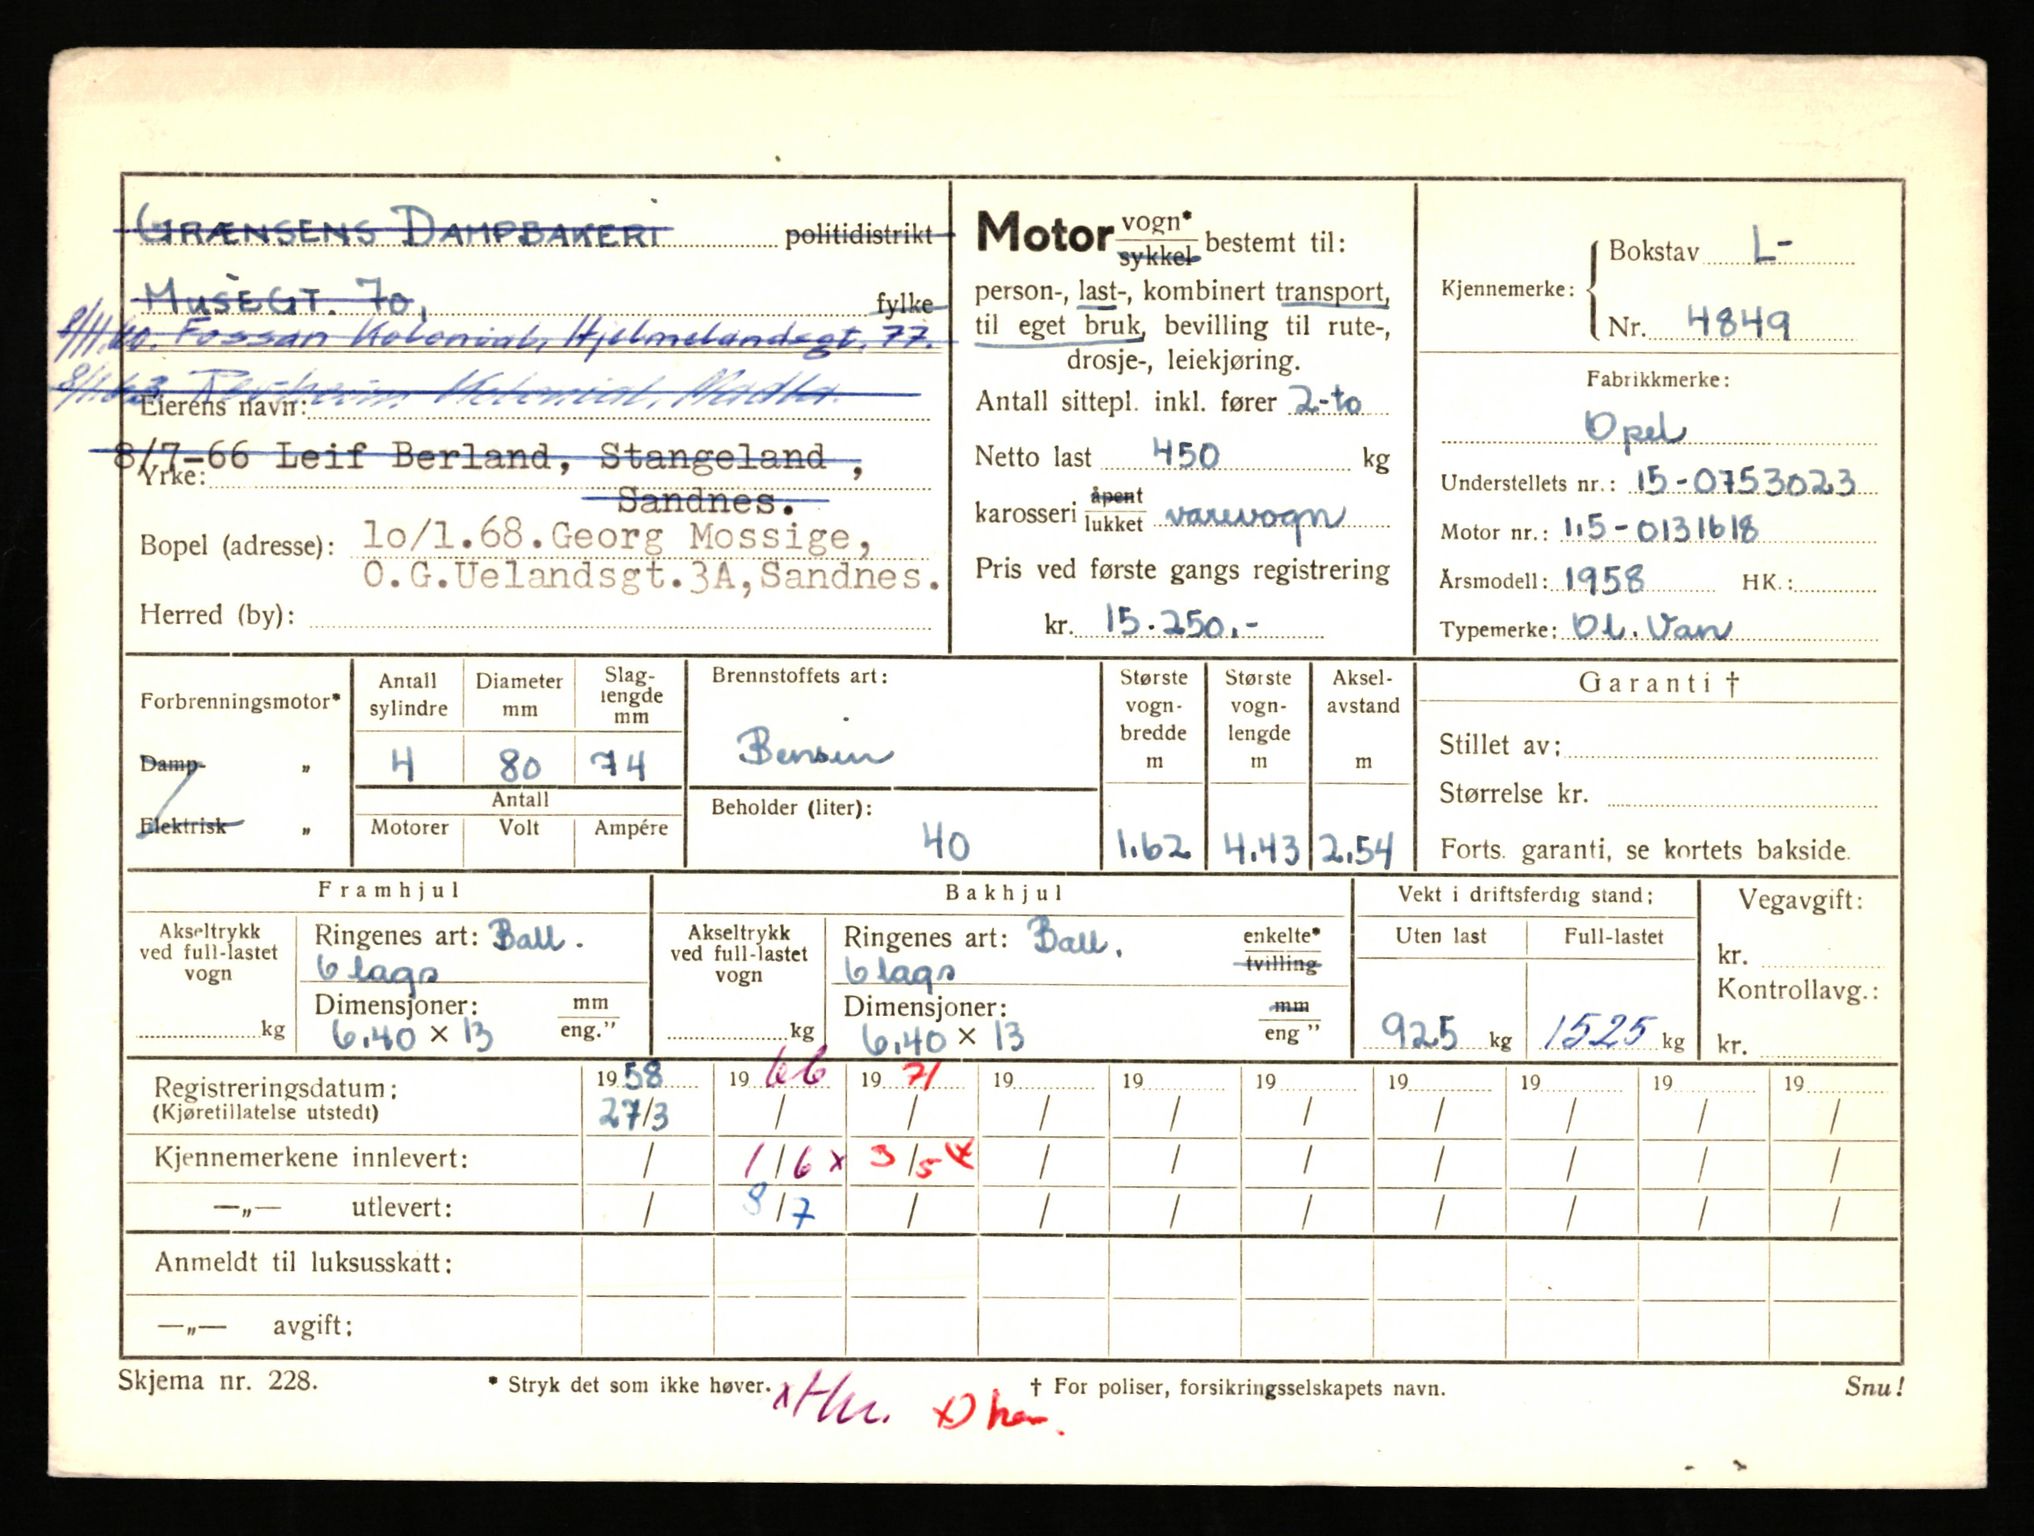 GRÆNSENS DAMPBAKERI politidistrikt
MUSÈGT. 70, fylke
Fossan Kolonial, Hjelmelandsgt. 77.
8/1.63 Kolonial, Madla.
Eierens navn:
8/7-66 Leif Berland, Stangeland ,
Yrke:
Sandnes.
Bopel (adresse): 1o/1.68.Georg Mossige,
O.G.Uelandsgt.3A,Sandnes.
Herred (by):
Motor vogn*
sykkel bestemt til:
person-, last-, kombinert transport,
til eget bruk, bevilling til rute-,
drosje-, leiekjøring.
Antall sittepl. inkl. fører 2-to
Netto last 450 kg
karosseri åpent
lukket varevogn
Pris ved første gangs registrering
kr. 15.250.-
Kjennemerke: Bokstav L-
Nr. 4849
Fabrikkmerke:
Opel
Understellets nr.: 15-0753023
Motor nr.: 1.5-0131618
Årsmodell: 1958 HK.:
Typemerke: Dl. Van
Forbrenningsmotor*
Damp- „
Elektrisk „
Antall sylindre Diameter mm Slag-lengde mm
4 80 74
Antall
Motorer Volt Ampére
Brennstoffets art:
Bensin
Beholder (liter):
40
Største vogn-bredde m Største vogn-lengde m Aksel-avstand m
1.62 4.43 2.54
Garanti †
Stillet av:
Størrelse kr.
Forts. garanti, se kortets bakside.
Framhjul
Akseltrykk
ved full-lastet
vogn
kg
Ringenes art: Ball.
6 lags
Dimensjoner: mm
6.40 × 13 eng."
Bakhjul
Akseltrykk
ved full-lastet
vogn
kg
Ringenes art: Ball. enkelte*
6 lags tvilling
Dimensjoner: mm
6.40 × 13 eng "
Vekt i driftsferdig stand:
Uten last Full-lastet
925 kg 1525 kg
Vegavgift:
kr.
Kontrollavg.:
kr.
Registreringsdatum: 1958 1966 1971 19 19 19 19 19 19 19
(Kjøretillatelse utstedt) 27/3 / / / / / / / / /
Kjennemerkene innlevert: / 1/6 x 3/5 x / / / / / / /
—„— utlevert: / 8/7 / / / / / / / /
Anmeldt til luksusskatt:
—„— avgift:
Skjema nr. 228. * Stryk det som ikke høver. † For poliser, forsikringsselskapets navn. Snu!